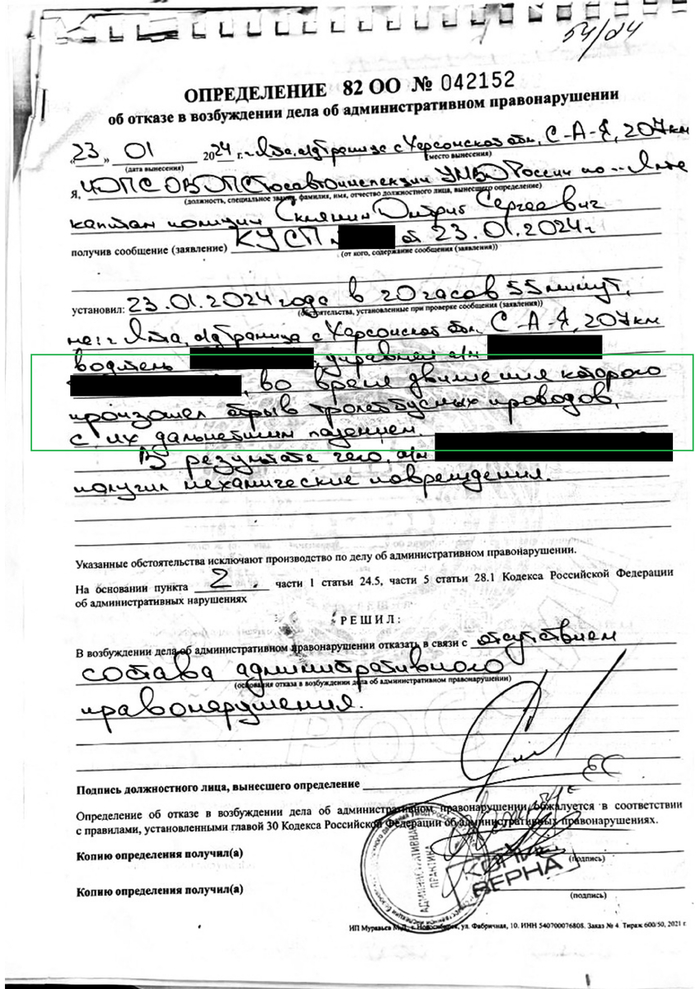 54/24
ОПРЕДЕЛЕНИЕ 82 ОО № 042152
об отказе в возбуждении дела об административном правонарушении
„23„ 01 2024 г. г. Ялта, а/д граница с Херсонской обл, С-А-Я, 207км
(дата вынесения) (место вынесения)
Я, ИДПС ОВ ДПС Госавтоинспекции УМВД России по г. Ялте
(должность, специальное звание, фамилия, имя, отчество должностного лица, вынесшего определение)
капитан полиции Дмитрий Сергеевич
получив сообщение (заявление) КУСП № от 23.01.2024г
(от кого, содержание сообщения (заявления))
установил: 23.01.2024 года в 20 часов 55 минут,
(обстоятельства, установленные при проверке сообщения (заявления))
на: г Ялта, а/д граница с Херсонской обл. С-А-Я, 207км
водитель , управляя а/м
, во время движения которого
произошел отрыв троллейбусных проводов,
с их дальнейшим падением.
В результате чего, а/м
получил механические повреждения.
Указанные обстоятельства исключают производство по делу об административном правонарушении.
На основании пункта 2. части 1 статьи 24.5, части 5 статьи 28.1 Кодекса Российской Федерации
об административных нарушениях
РЕШИЛ:
В возбуждении дела об административном правонарушении отказать в связи с отсутствием
состава административного
(основания отказа в возбуждении дела об административном правонарушении)
правонарушения.
Подпись должностного лица, вынесшего определение
Определение об отказе в возбуждении дела об административном правонарушении обжалуется в соответствии
с правилами, установленными главой 30 Кодекса Российской Федерации об административных правонарушениях.
Копию определения получил(а)
(подпись)
АДМИНИСТРАТИВНАЯ ПРАКТИКА
КОПИЯ ВЕРНА
Копию определения получил(а)
(подпись)
ИП Муравьев М.Д., г. Новосибирск, ул. Фабричная, 10. ИНН 540700076808. Заказ № 4. Тираж 600/50, 2021 г